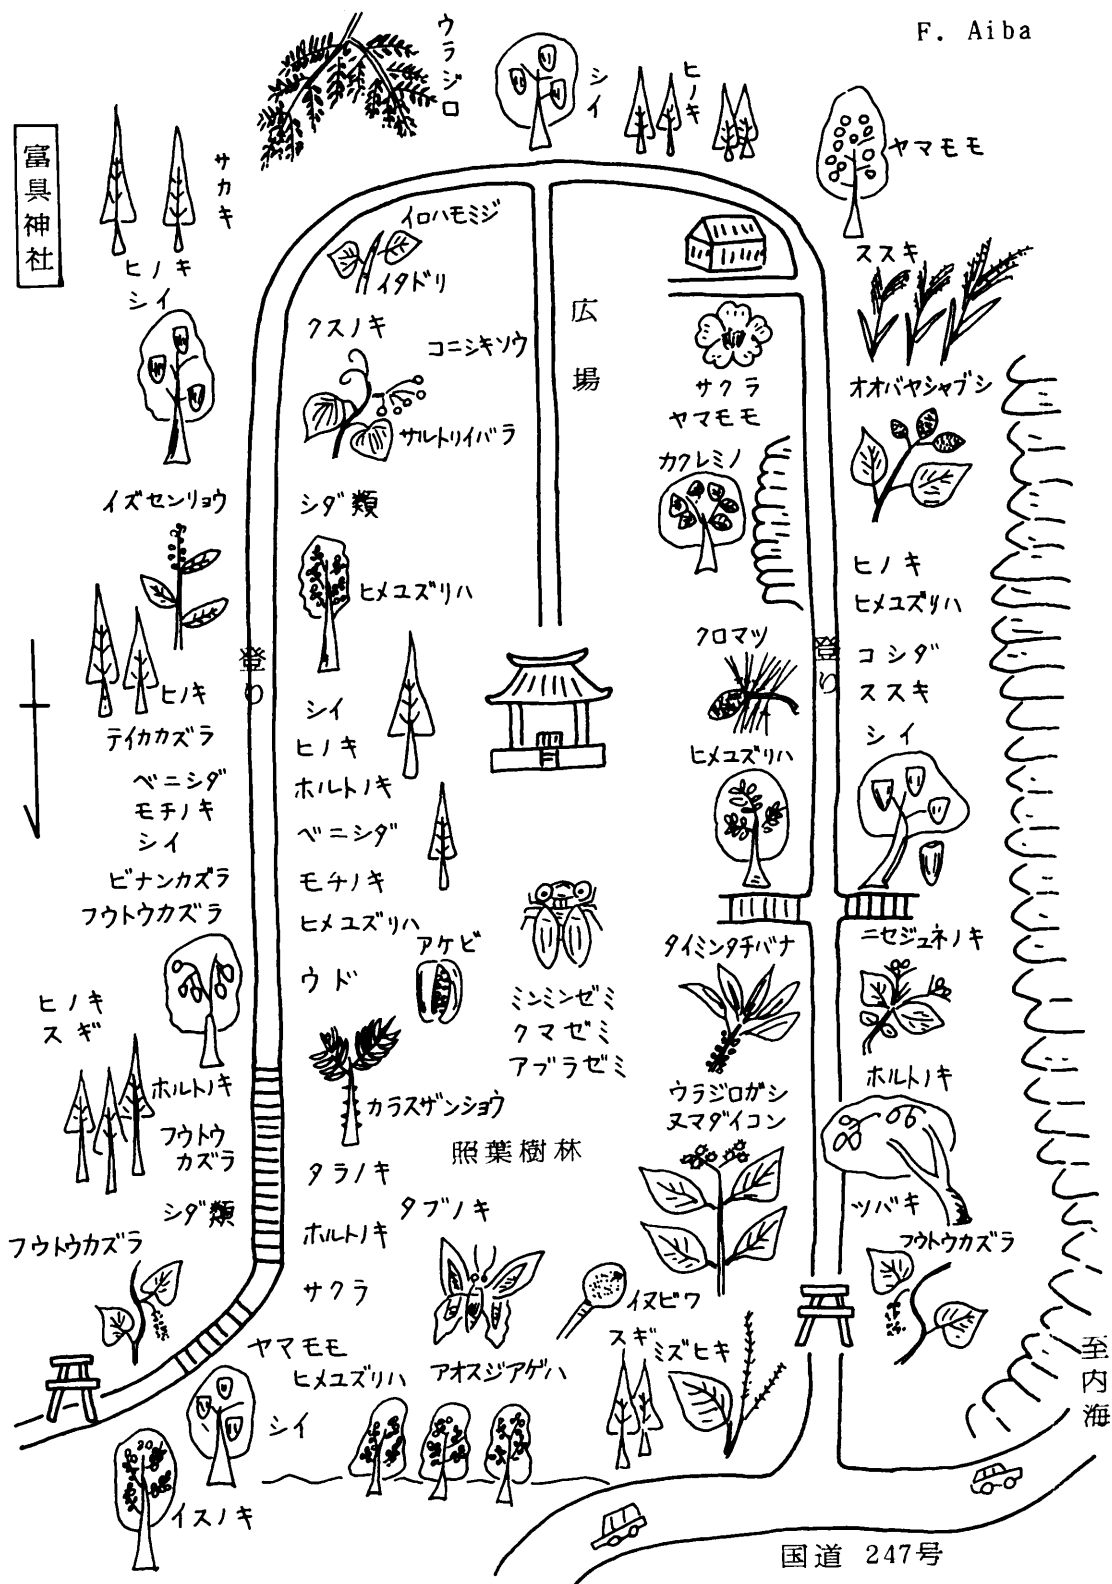 F. Aiba
富具神社
ウラジロ
シイ
ヒノキ
ヤマモモ
サカキ
ヒノキ
シイ
イズセンリョウ
ヒノキ
テイカカズラ
ベニシダ
モチノキ
シイ
ビナンカズラ
フウトウカズラ
ヒノキ
スギ
ホルトノキ
フウトウ
カズラ
シダ類
フウトウカズラ
登り
イロハモミジ
イタドリ
クスノキ
コニシキソウ
サルトリイバラ
シダ類
ヒメユズリハ
シイ
ヒノキ
ホルトノキ
ベニシダ
モチノキ
ヒメユズリハ
アケビ
ウド
カラスザンショウ
タラノキ
ホルトノキ
サクラ
ヤマモモ
ヒメユズリハ
シイ
イスノキ
広場
ミンミンゼミ
クマゼミ
アブラゼミ
照葉樹林
タブノキ
アオスジアゲハ
イヌビワ
スギ
ミズヒキ
サクラ
ヤマモモ
カクレミノ
クロマツ
ヒメユズリハ
タイミンタチバナ
ウラジロガシ
ヌマダイコン
登り
ススキ
オオバヤシャブシ
ヒノキ
ヒメユズリハ
コシダ
ススキ
シイ
ニセジュネノキ
ホルトノキ
ツバキ
フウトウカズラ
至内海
国道 247号